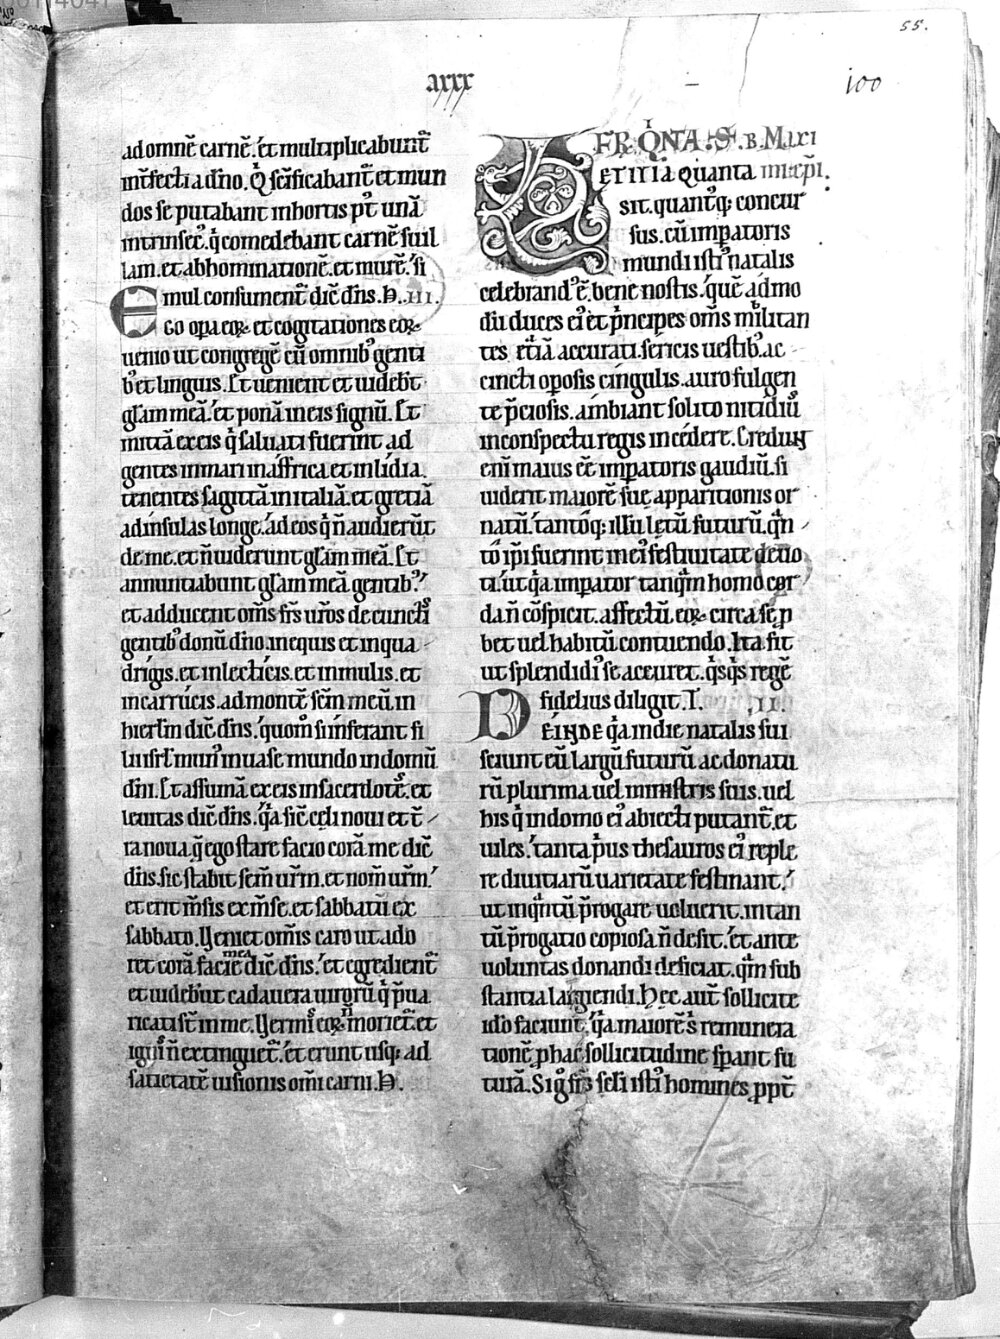 55.
axxx
100
ad omnē carnē. et multiplicabunt᷑
int᷑fecti a dño. Q̇ sc̄ificabant᷑ et mun
dos se putabant in hortis pᵗ unā
intrinsec᷒. q̇ comedebant carnē suil
lam. et abhominationē. et murē. si
mul consument᷑ dic̄ dn̄s. .III.
EGO opa eoꝝ et cogitationes eoꝝ
uenio ut congregē cū omnib᷒ genti
b᷒ et linguis. Et uenient et uideb̄t
glam meā. et ponā in eis signū. Et
mittā ex eis q̇ saluati fuerint ad
gentes in mari in affrica et in lidia
tenentes sagittā in italiā. et gretiā
ad insulas longe. ad eos q̇ ñ audierūt
de me. et ñ uiderunt glam meā. Et
annuntiabunt glam meā gentib᷒.
et adducent om̄s frs ur̄os de cunctis
gentib᷒ donū dño. in equis et in qua
drigis. et in lecticis. et in mulis. et
in carrucis. ad montē sc̄m meū in
hierl̄m dic̄ dn̄s. quom̄ si inferant fi
lii isrl̄ mun᷒ in uase mundo in domū
dn̄i. Et assumā ex eis in sacerdotē. et
leuitas dic̄ dn̄s. q̇a sic̄ celi noui et t̄
ra noua. q̄ ego stare facio corā me dic̄
dn̄s. sic stabit sem̄ ur̄m. et nom̄ ur̄m.
et erit m̄sis ex m̄se. et sabbatū ex
sabbato. Veniet omīs caro ut ado
ret corā facie mea dic̄ dn̄s. et egredient᷑
et uideb̄ut cadauera uiroꝝ q̇ p̄ua
ricati st̄ in me. Vermis eoꝝ ñ moriet᷑. et
ignis ñ extinguet᷑. et erunt usq; ad
satietatē uisionis om̄i carni.
FR. Q̇NTA. S. B. MAXI
LETITIA quanta mi ep̄i.
sit. quant᷒q; concur
sus. cū imperatoris
mundi isti᷒ natalis
celebrand᷒ ē. bene nostis. quē admo
dū duces ei᷒ et p̄ncipes. om̄s militan
tes. etiā accurati. sericis uestib᷒. ac
cincti op̄osis cingulis. auro fulgen
te p̄ciosis. ambiant solito nitidi᷒
in conspectu regis incedere. Credunt
eni maius eē imp̄atoris gaudiū. si
uiderit maiorē sue apparitionis or
natū. tantoq; illū letū futurū. q̄n
to ip̄i fuerint in ei᷒ festiuitate deuo
ti. ut q̇a impator tanq̄m homo cor
da ñ cōspicit. affectū eoꝝ circa se p
bet uel habitū contuendo. Ita fit
ut splendidi᷒ se accuret. q̇sq̇s regē
fidelius diligit. T. .II.
DEINDE q̇a in die natalis sui
sciunt eū largū futurū ac donatu
rū plurima uel ministris suis. uel
his q̇ in domo ei᷒ abiecti putant᷑. et
uiles. tanta p̄us thesauros ei᷒ reple
re diuitiarū uarietate festinant.
ut inq̄ntū p̄rogare uoluerit. in tan
tū p̄rogatio copiosa ñ desit. et ante
uoluntas donandi deficiat. q̄m sub
stantia largiendi. Hec aut̄ sollicite
ido faciunt. q̇a maiorē s᷒ remunera
tionē p hac sollicitudine sp̄ant fu
turā. Sig frs seli isti homines ppt᷑